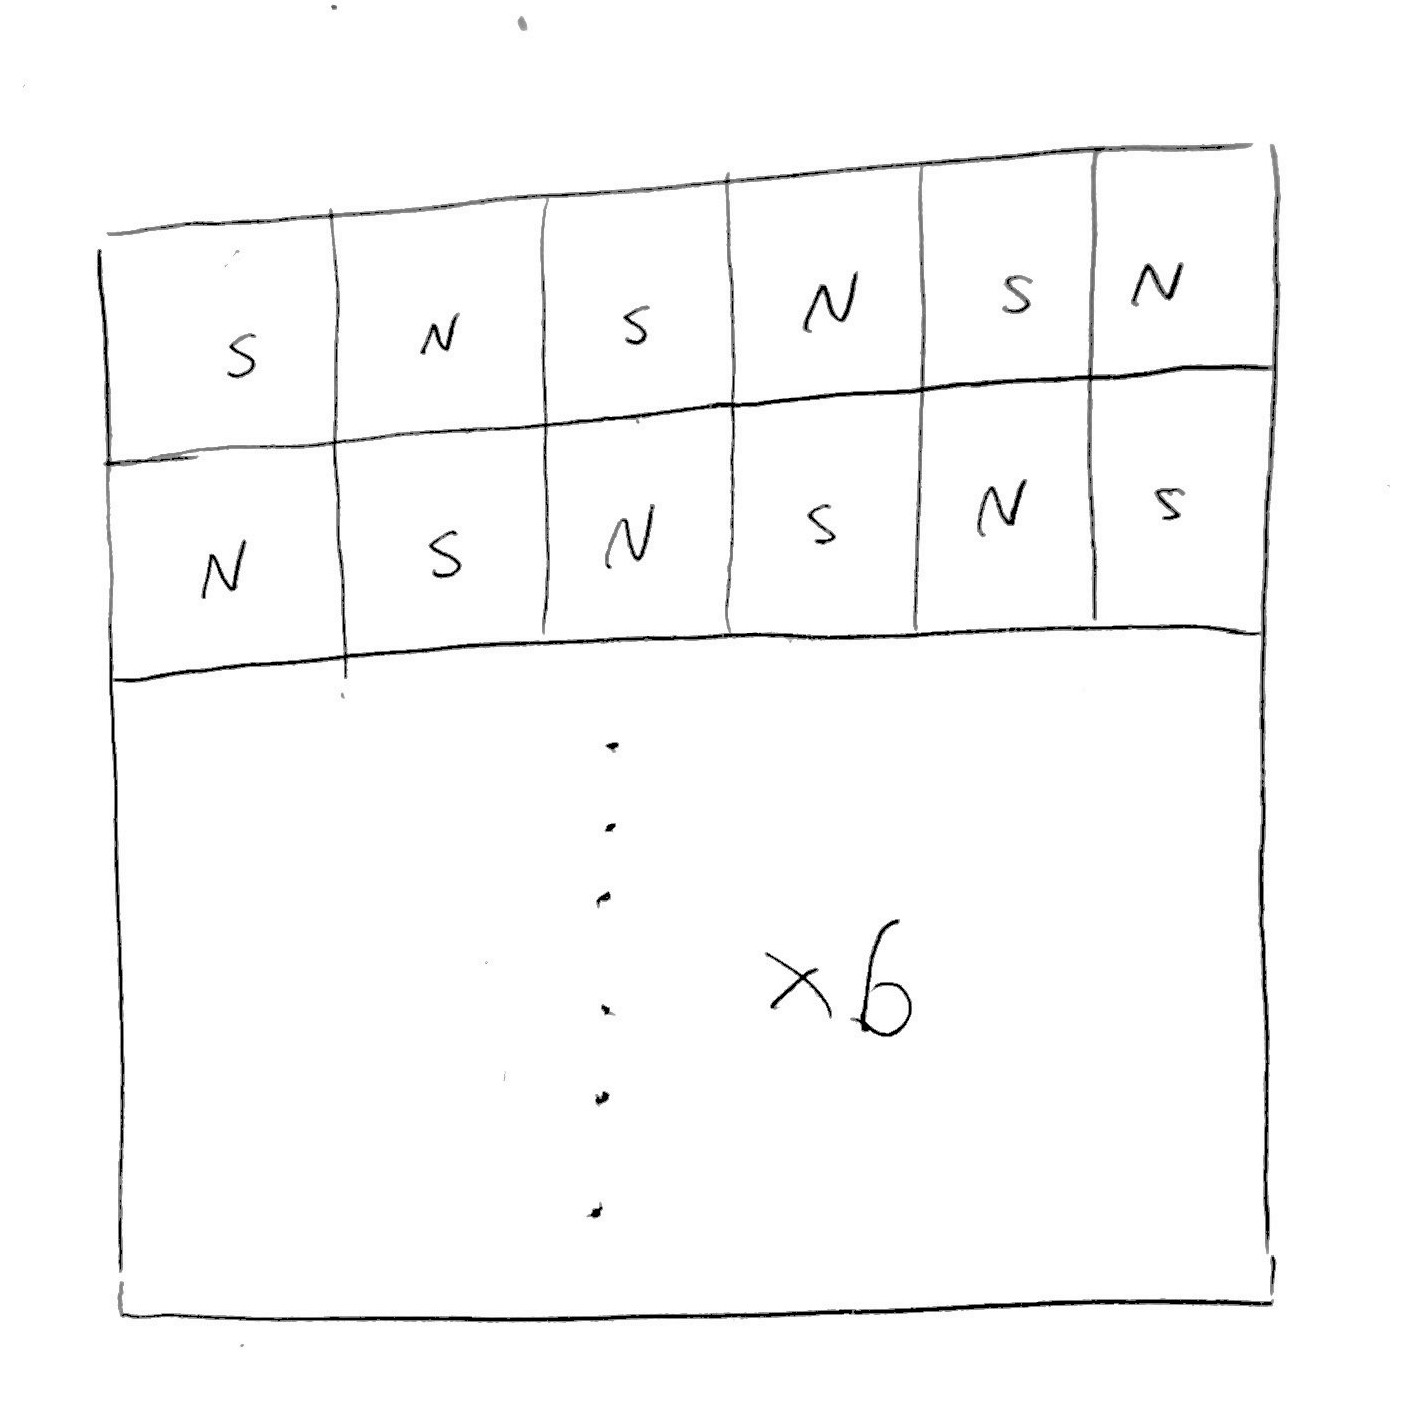 S N S N S N
N S N S N S
×6